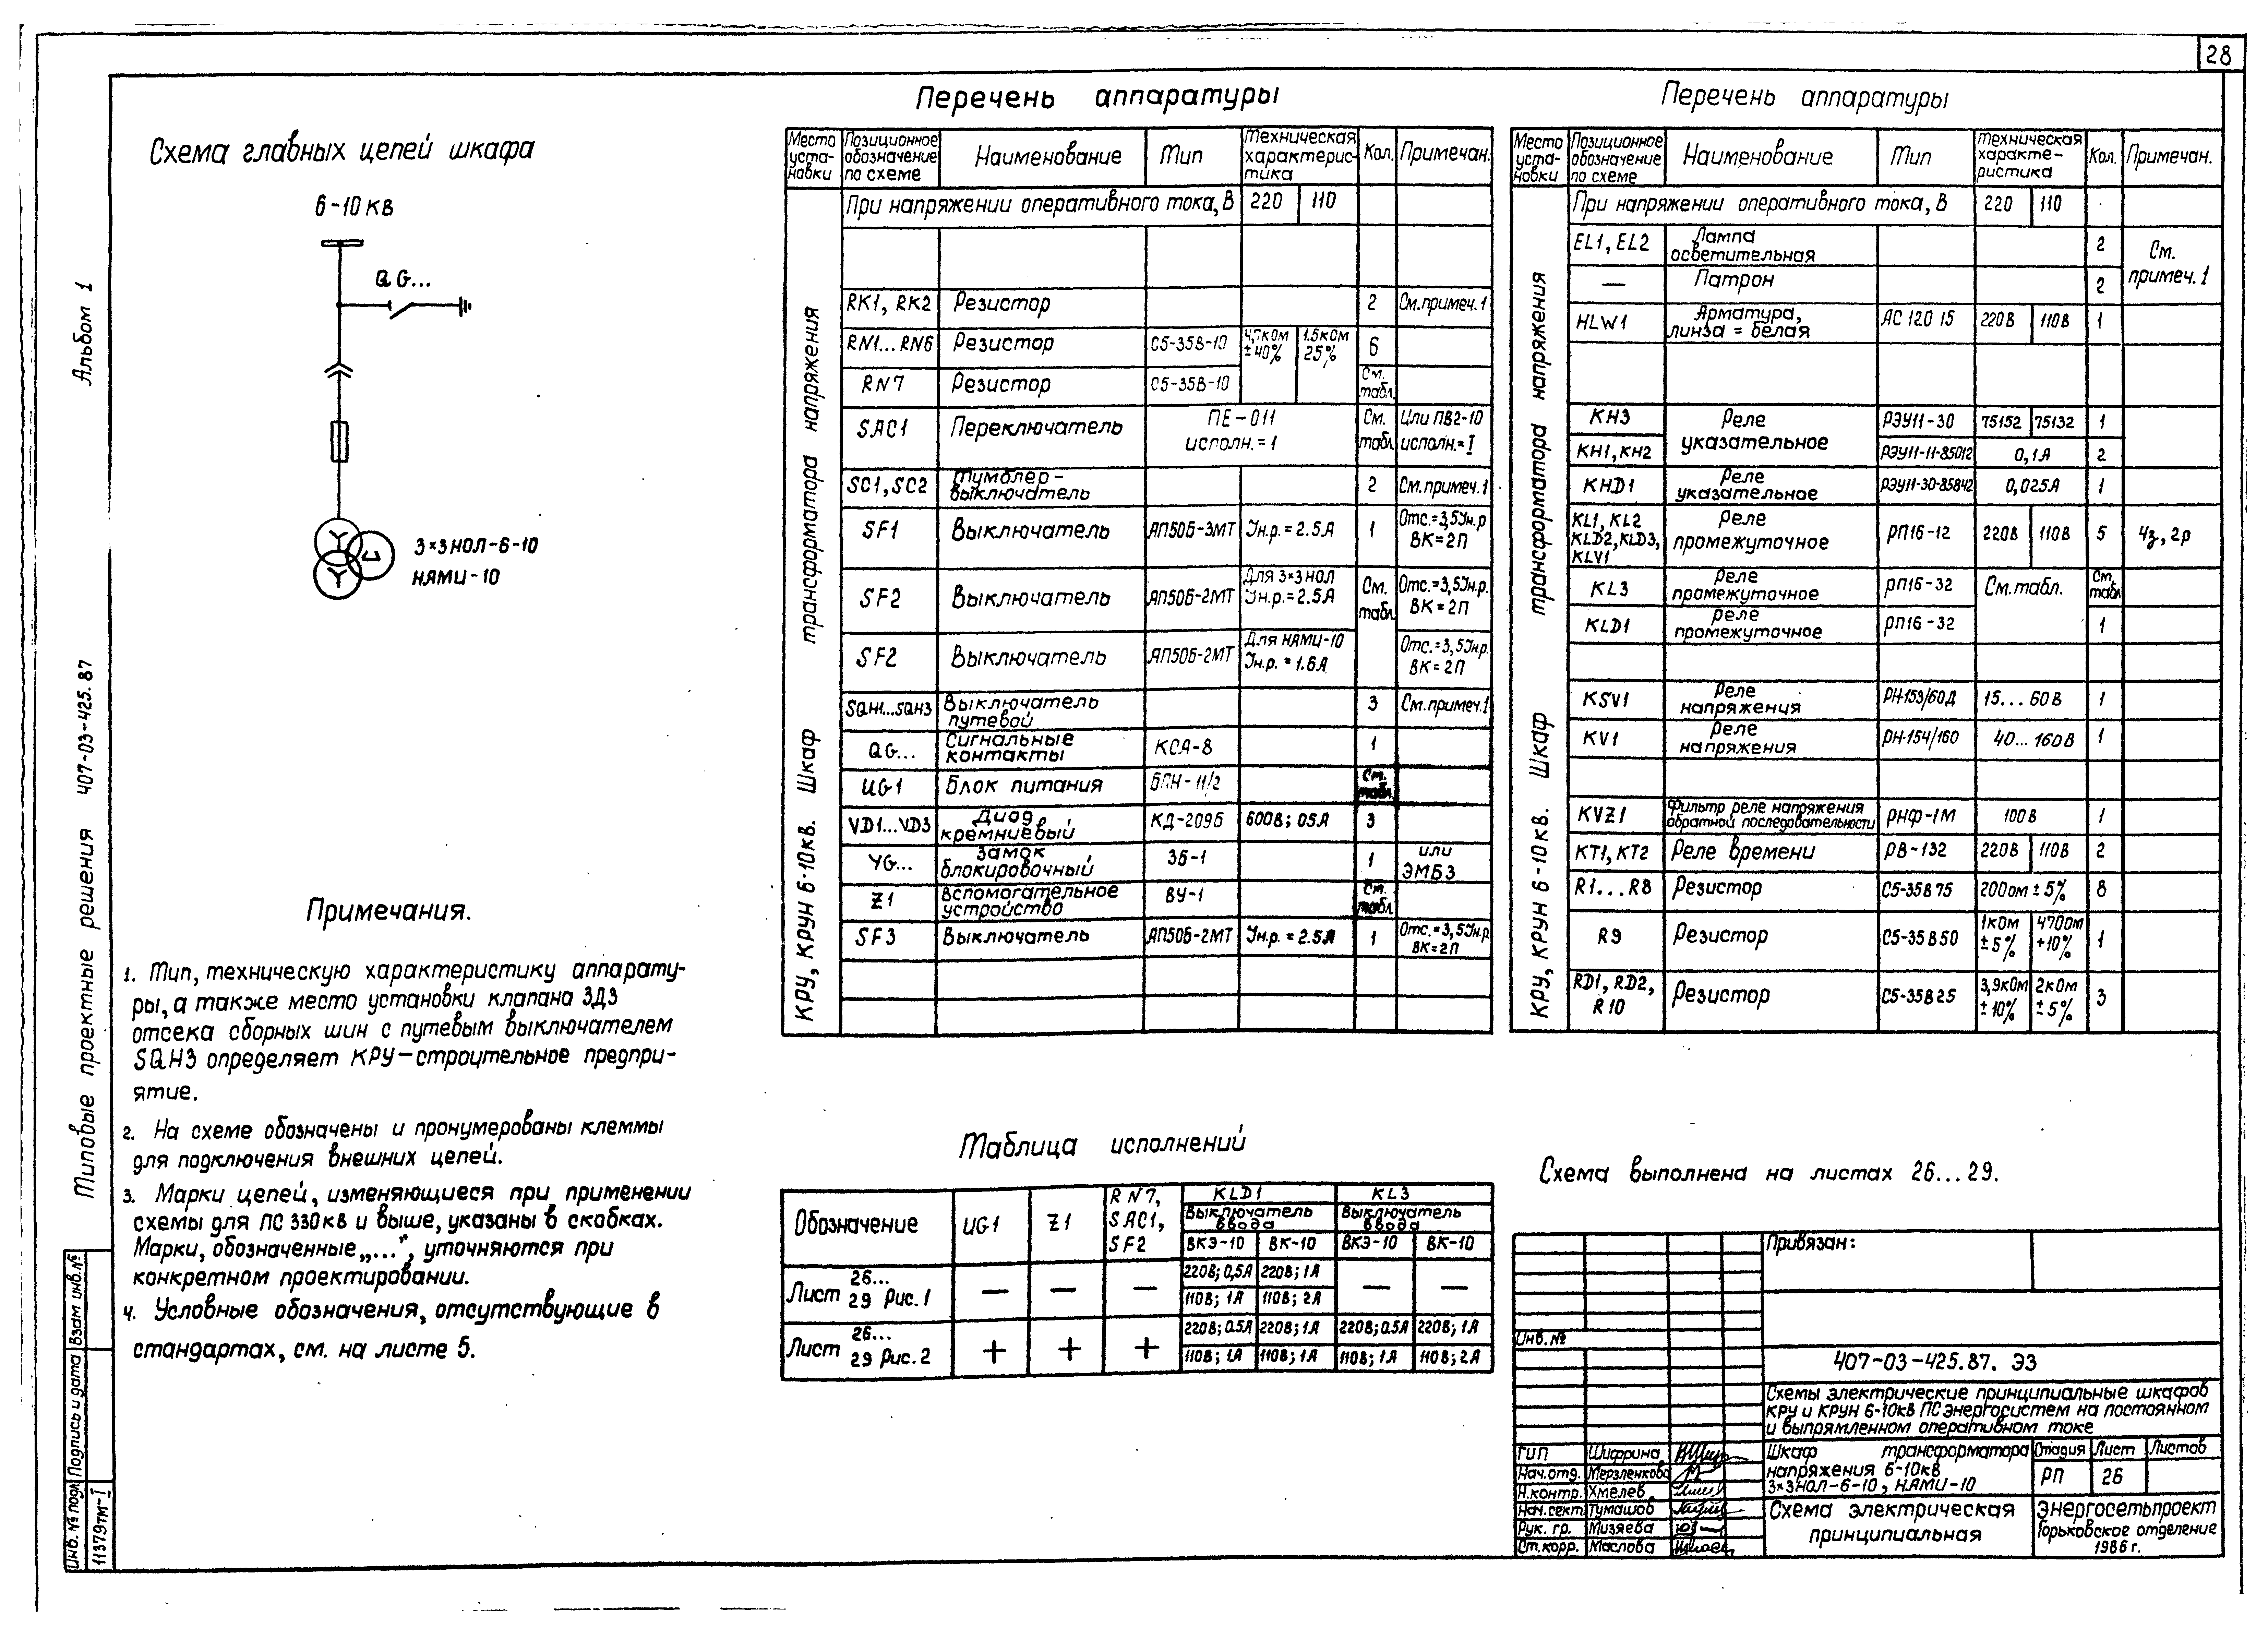 28
Альбом 1
Типовые проектные решения 407-03-425.87
Схема главных цепей шкафа
6-10 кв
QG...
3×ЗНОЛ-6-10
НАМИ-10
Примечания.
1. Тип, техническую характеристику аппарату-
ры, а также место установки клапана ЗДЗ
отсека сборных шин с путевым выключателем
SQH3 определяет КРУ-строительное предпри-
ятие.
2. На схеме обозначены и пронумерованы клеммы
для подключения внешних цепей.
3. Марки цепей, изменяющиеся при применении
схемы для ПС 330 кв и выше, указаны в скобках.
Марки, обозначенные „...”, уточняются при
конкретном проектировании.
4. Условные обозначения, отсутствующие в
стандартах, см. на листе 5.
Перечень аппаратуры
Место уста-новки | Позиционное обозначение по схеме | Наименование | Тип | Техническая характерис-тика | Кол. | Примечан.
КРУ, КРУН 6-10кв. Шкаф трансформатора напряжения
При напряжении оперативного тока, В 220 110
RK1, RK2 Резистор 2 См. примеч. 1
RN1...RN6 Резистор С5-35В-10 ±40% 1.5кОм 25% 6
RN7 Резистор С5-35В-10 См. табл.
SAC1 Переключатель ПЕ-011 исполн.=1 См. табл. Или ПВ2-10 исполн.=I
SC1, SC2 Тумблер-выключатель 2 См. примеч. 1
SF1 Выключатель АП50Б-3МТ Iн.р.=2.5А 1 Отс.=3,5Iн.р ВК=2П
SF2 Выключатель АП50Б-2МТ Для 3×ЗНОЛ Iн.р.=2.5А См. табл. Отс.=3,5Iн.р. ВК=2П
SF2 Выключатель АП50Б-2МТ Для НАМИ-10 Iн.р.=1.6А Отс.=3,5Iн.р. ВК=2П
SQH1...SQH3 Выключатель путевой 3 См. примеч. 1
QG... Сигнальные контакты КСА-8 1
UG1 Блок питания БПН-11/2 См. табл.
VD1...VD3 Диод кремниевый КД-209Б 600В; 05А 3
YG... Замок блокировочный ЗБ-1 1 или ЭМБЗ
Z1 Вспомогательное устройство ВУ-1 См. табл.
SF3 Выключатель АП50Б-2МТ Iн.р.=2.5А 1 Отс.=3,5Iн.р. ВК=2П
Перечень аппаратуры
Место уста-новки | Позиционное обозначение по схеме | Наименование | Тип | Техническая характе-ристика | Кол. | Примечан.
КРУ, КРУН 6-10кв. Шкаф трансформатора напряжения
При напряжении оперативного тока, В 220 110
EL1, EL2 Лампа осветительная 2 См. примеч. 1
— Патрон 2
HLW1 Арматура, линза = белая АС 120 15 220В 110В 1
KH3 Реле указательное РЭУ11-30 75152 75132 1
KH1, KH2 РЭУ11-11-85012 0,1А 2
KHD1 Реле указательное РЭУ11-30-85842 0,025А 1
KL1, KL2 KLD2, KLD3, KLV1 Реле промежуточное РП16-12 220В 110В 5 4з, 2р
KL3 Реле промежуточное РП16-32 См. табл. См. табл.
KLD1 Реле промежуточное РП16-32 1
KSV1 Реле напряжения РН-153/60Д 15...60В 1
KV1 Реле напряжения РН-154/160 40...160В 1
KVZ1 Фильтр реле напряжения обратной последовательности РНФ-1М 100В 1
KT1, KT2 Реле времени РВ-132 220В 110В 2
R1...R8 Резистор С5-35В 75 200ом ±5% 8
R9 Резистор С5-35В50 1кОм ±5% 470ом +10% 1
RD1, RD2, R10 Резистор С5-35В25 3,9кОм ±10% 2кОм ±5% 3
Таблица исполнений
Обозначение | UG1 | Z1 | RN7, SAC1, SF2 | KLD1 Выключатель ввода ВКЭ-10 ВК-10 | KL3 Выключатель ввода ВКЭ-10 ВК-10
Лист 26...29 Рис. 1 — — — 220В; 0,5А 220В; 1А — —
110В; 1А 110В; 2А
Лист 26...29 Рис. 2 + + + 220В; 0.5А 220В; 1А 220В; 0.5А 220В; 1А
110В; 1А 110В; 1А 110В; 1А 110В; 2А
Схема выполнена на листах 26...29.
Привязан:
Инв. №
407-03-425.87. ЭЗ
Схемы электрические принципиальные шкафов
КРУ и КРУН 6-10кв ПС энергосистем на постоянном
и выпрямленном оперативном токе
ГИП Шифрина
Нач. отд. Мерзленкова
Н. контр. Хмелев
Нач. сект. Тумашов
Рук. гр. Мизяева
Ст. корр. Маслова
Шкаф трансформатора
напряжения 6-10кв
3×ЗНОЛ-6-10, НАМИ-10
Стадия Лист Листов
РП 26
Схема электрическая
принципиальная
Энергосетьпроект
Горьковское отделение
1986 г.
Взам инв. №
Подпись и дата
Инв. № подл.
11379тм-I